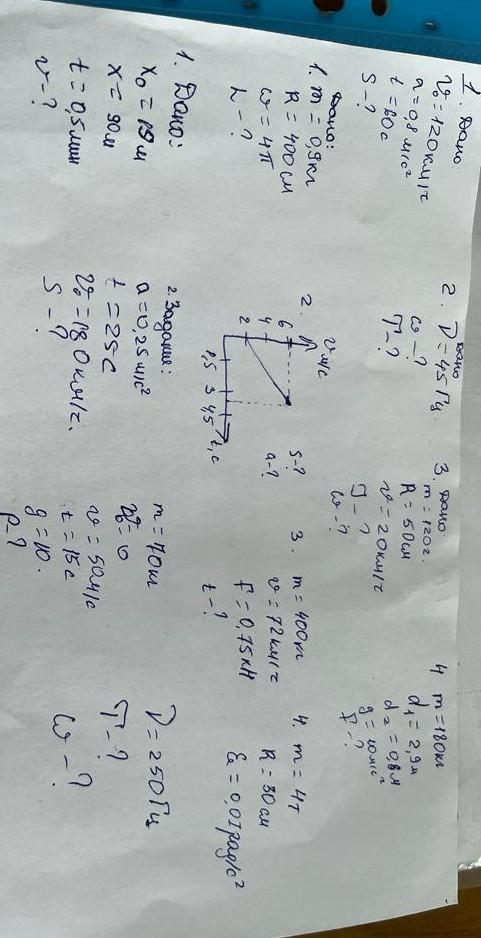 1. Дано:
v₀ = 120 км/ч
a = 0,8 м/с²
t = 60 с
S - ?
2. Дано
ν = 45 Гц
ω - ?
T - ?
3. Дано
m = 120 г.
R = 50 см
v = 20 км/ч
J - ?
ω - ?
4 m = 180 кг
d₁ = 2,9 м
d₂ = 0,8 м
g = 10 м/с²
F - ?
1. Дано:
m = 0,9 кг
R = 400 см
ω = 4π
L - ?
2.
v м/с
6
4
2
1,5 3 4,5 t, с
S - ?
a - ?
3. m = 400 т
v = 72 км/ч
F = 0,75 кН
t - ?
4. m = 4 т
R = 30 см
ε = 0,01 рад/с²
1. Дано:
x₀ = 19 м
x = 90 м
t = 0,5 мин
v - ?
2. Задание:
a = 0,25 м/с²
t = 25 с
v₀ = 180 км/ч.
S - ?
v₀ = 0
v = 50 м/с
t = 15 с
g = 10.
P - ?
ν = 250 Гц
T - ?
ω - ?